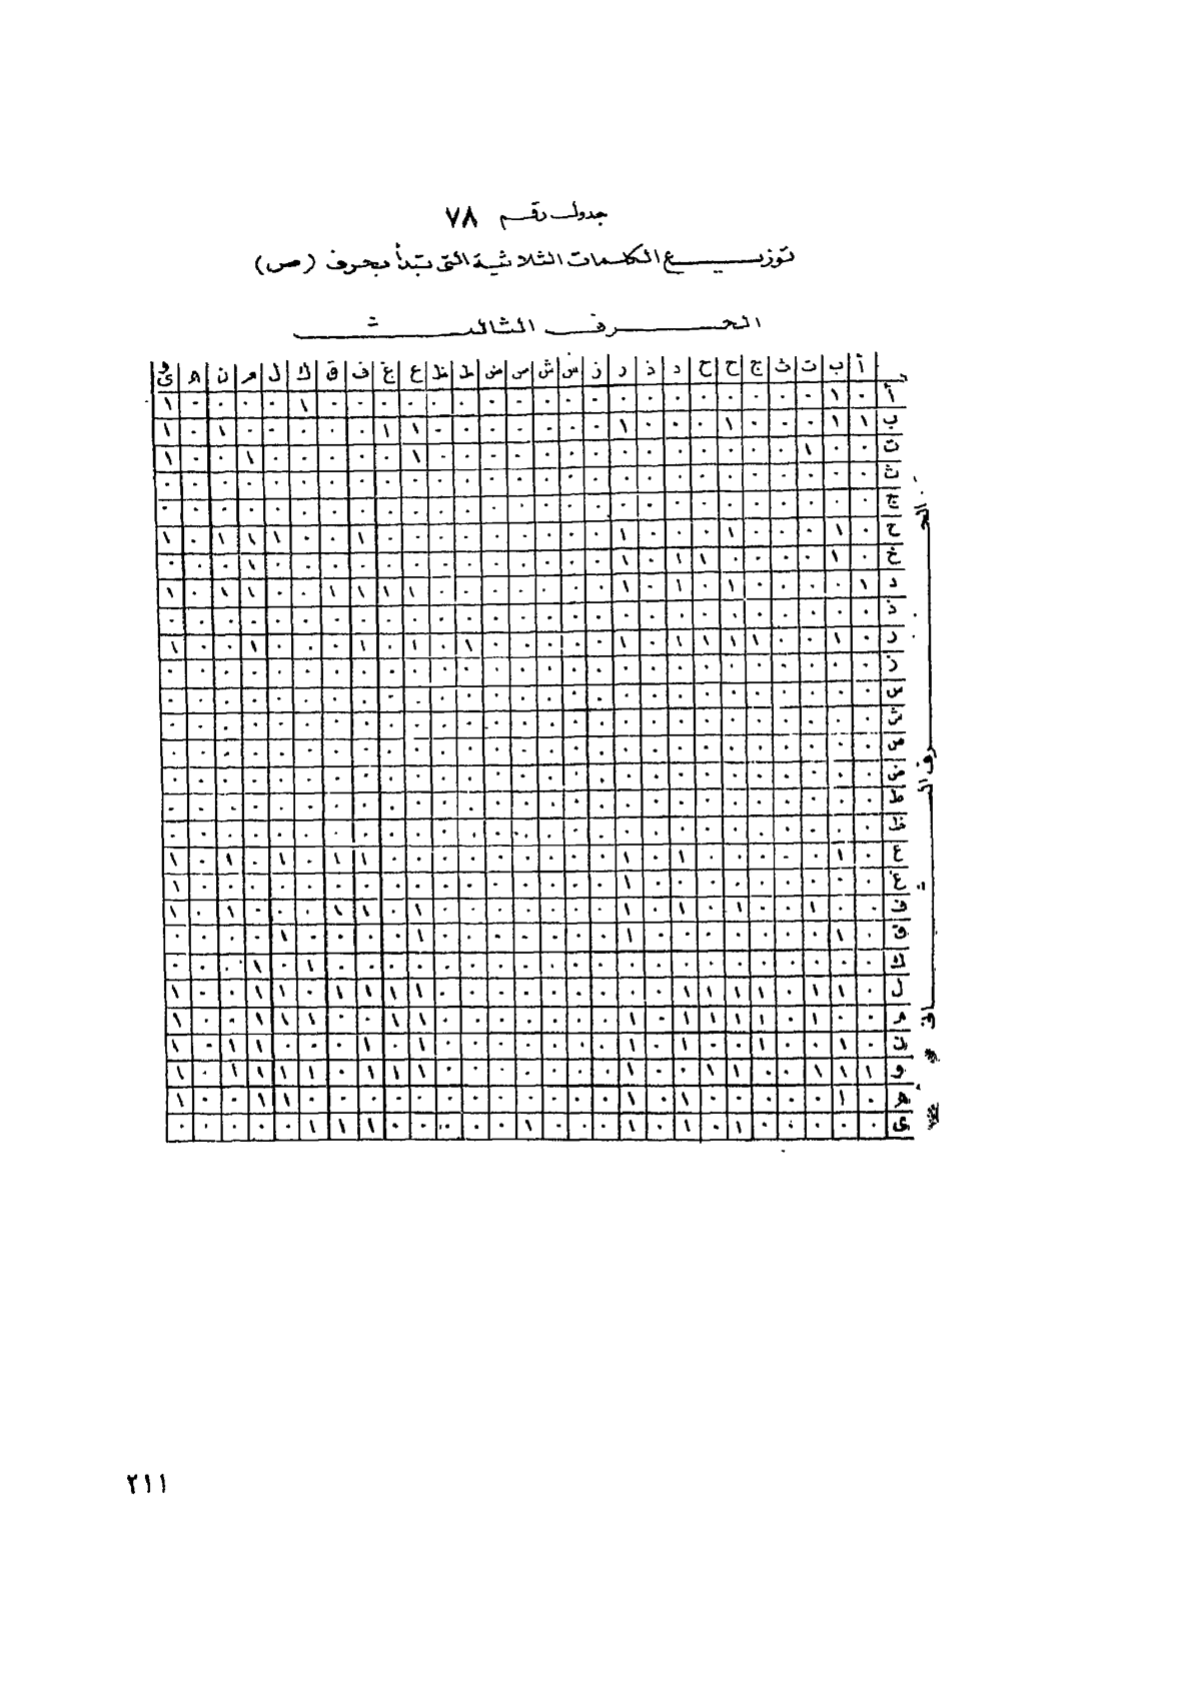 جدول رقم ٧٨
توزيع الكلمات الثلاثية التى تبدأ بحرف (ص)
الحرف الثالث
أ ب ت ث ج ح ح د ذ ر ز س ش ص ض ط ظ ع غ ف ق ك ل م ن ه وى
أ ٠ ١ ٠ ٠ ٠ ٠ ٠ ٠ ٠ ٠ ٠ ٠ ٠ ٠ ٠ ٠ ٠ ٠ ٠ ٠ ٠ ١ ٠ ٠ ٠ ٠ ١
ب ١ ١ ٠ ٠ ٠ ١ ٠ ٠ ٠ ١ ٠ ٠ ٠ ٠ ٠ ٠ ٠ ١ ١ ٠ ٠ ٠ ٠ ٠ ١ ٠ ١
ت ٠ ٠ ١ ٠ ٠ ٠ ٠ ٠ ٠ ٠ ٠ ٠ ٠ ٠ ٠ ٠ ٠ ١ ٠ ٠ ٠ ٠ ٠ ١ ٠ ٠ ١
ث ٠ ٠ ٠ ٠ ٠ ٠ ٠ ٠ ٠ ٠ ٠ ٠ ٠ ٠ ٠ ٠ ٠ ٠ ٠ ٠ ٠ ٠ ٠ ٠ ٠ ٠ ٠
ج ٠ ٠ ٠ ٠ ٠ ٠ ٠ ٠ ٠ ٠ ٠ ٠ ٠ ٠ ٠ ٠ ٠ ٠ ٠ ٠ ٠ ٠ ٠ ٠ ٠ ٠ ٠
ح ٠ ١ ٠ ٠ ٠ ١ ٠ ٠ ٠ ١ ٠ ٠ ٠ ٠ ٠ ٠ ٠ ٠ ٠ ١ ٠ ٠ ١ ١ ١ ٠ ١
خ ٠ ١ ٠ ٠ ٠ ٠ ١ ١ ٠ ١ ٠ ٠ ٠ ٠ ٠ ٠ ٠ ٠ ٠ ٠ ٠ ٠ ٠ ١ ٠ ٠ ٠
د ١ ٠ ٠ ٠ ٠ ١ ٠ ١ ٠ ١ ٠ ٠ ٠ ٠ ٠ ٠ ٠ ١ ١ ١ ١ ٠ ٠ ١ ١ ٠ ١
ذ ٠ ٠ ٠ ٠ ٠ ٠ ٠ ٠ ٠ ٠ ٠ ٠ ٠ ٠ ٠ ٠ ٠ ٠ ٠ ٠ ٠ ٠ ٠ ٠ ٠ ٠ ٠
ر ٠ ١ ٠ ٠ ١ ١ ١ ١ ٠ ١ ٠ ٠ ٠ ٠ ٠ ١ ٠ ١ ٠ ١ ٠ ٠ ٠ ١ ٠ ٠ ١
ز ٠ ٠ ٠ ٠ ٠ ٠ ٠ ٠ ٠ ٠ ٠ ٠ ٠ ٠ ٠ ٠ ٠ ٠ ٠ ٠ ٠ ٠ ٠ ٠ ٠ ٠ ٠
س ٠ ٠ ٠ ٠ ٠ ٠ ٠ ٠ ٠ ٠ ٠ ٠ ٠ ٠ ٠ ٠ ٠ ٠ ٠ ٠ ٠ ٠ ٠ ٠ ٠ ٠ ٠
ش ٠ ٠ ٠ ٠ ٠ ٠ ٠ ٠ ٠ ٠ ٠ ٠ ٠ ٠ ٠ ٠ ٠ ٠ ٠ ٠ ٠ ٠ ٠ ٠ ٠ ٠ ٠
ص ٠ ٠ ٠ ٠ ٠ ٠ ٠ ٠ ٠ ٠ ٠ ٠ ٠ ٠ ٠ ٠ ٠ ٠ ٠ ٠ ٠ ٠ ٠ ٠ ٠ ٠ ٠
ض ٠ ٠ ٠ ٠ ٠ ٠ ٠ ٠ ٠ ٠ ٠ ٠ ٠ ٠ ٠ ٠ ٠ ٠ ٠ ٠ ٠ ٠ ٠ ٠ ٠ ٠ ٠
ط ٠ ٠ ٠ ٠ ٠ ٠ ٠ ٠ ٠ ٠ ٠ ٠ ٠ ٠ ٠ ٠ ٠ ٠ ٠ ٠ ٠ ٠ ٠ ٠ ٠ ٠ ٠
ظ ٠ ٠ ٠ ٠ ٠ ٠ ٠ ٠ ٠ ٠ ٠ ٠ ٠ ٠ ٠ ٠ ٠ ٠ ٠ ٠ ٠ ٠ ٠ ٠ ٠ ٠ ٠
ع ٠ ١ ٠ ٠ ٠ ٠ ٠ ١ ٠ ١ ٠ ٠ ٠ ٠ ٠ ٠ ٠ ٠ ٠ ١ ١ ٠ ١ ٠ ١ ٠ ١
غ ٠ ٠ ٠ ٠ ٠ ٠ ٠ ٠ ٠ ١ ٠ ٠ ٠ ٠ ٠ ٠ ٠ ٠ ٠ ٠ ٠ ٠ ٠ ٠ ٠ ٠ ١
ف ٠ ٠ ١ ٠ ٠ ١ ٠ ١ ٠ ١ ٠ ٠ ٠ ٠ ٠ ٠ ٠ ١ ٠ ١ ١ ٠ ٠ ٠ ١ ٠ ١
ق ٠ ١ ٠ ٠ ٠ ٠ ٠ ٠ ٠ ١ ٠ ٠ ٠ ٠ ٠ ٠ ٠ ١ ٠ ٠ ٠ ٠ ١ ٠ ٠ ٠ ٠
ك ٠ ٠ ٠ ٠ ٠ ٠ ٠ ٠ ٠ ٠ ٠ ٠ ٠ ٠ ٠ ٠ ٠ ٠ ٠ ٠ ٠ ١ ٠ ١ ٠ ٠ ٠
ل ٠ ١ ١ ٠ ١ ١ ١ ١ ٠ ٠ ٠ ٠ ٠ ٠ ٠ ٠ ٠ ١ ١ ١ ١ ٠ ١ ١ ٠ ٠ ١
م ٠ ٠ ١ ٠ ١ ١ ١ ١ ٠ ١ ٠ ٠ ٠ ٠ ٠ ٠ ٠ ١ ١ ٠ ٠ ١ ١ ١ ٠ ٠ ١
ن ٠ ١ ٠ ٠ ١ ٠ ٠ ١ ٠ ١ ٠ ٠ ٠ ٠ ٠ ٠ ٠ ١ ٠ ١ ٠ ٠ ٠ ١ ١ ٠ ١
و ١ ١ ١ ٠ ٠ ١ ١ ٠ ٠ ١ ٠ ٠ ٠ ٠ ٠ ٠ ٠ ١ ١ ١ ٠ ١ ١ ١ ١ ٠ ١
ه ٠ ١ ٠ ٠ ٠ ٠ ٠ ١ ٠ ١ ٠ ٠ ٠ ٠ ٠ ٠ ٠ ٠ ٠ ٠ ٠ ٠ ١ ١ ٠ ٠ ١
ى ٠ ٠ ٠ ٠ ٠ ١ ٠ ١ ٠ ١ ٠ ٠ ٠ ١ ٠ ٠ ٠ ٠ ٠ ١ ١ ١ ٠ ٠ ٠ ٠ ٠
الحرف الثانى
٢١١